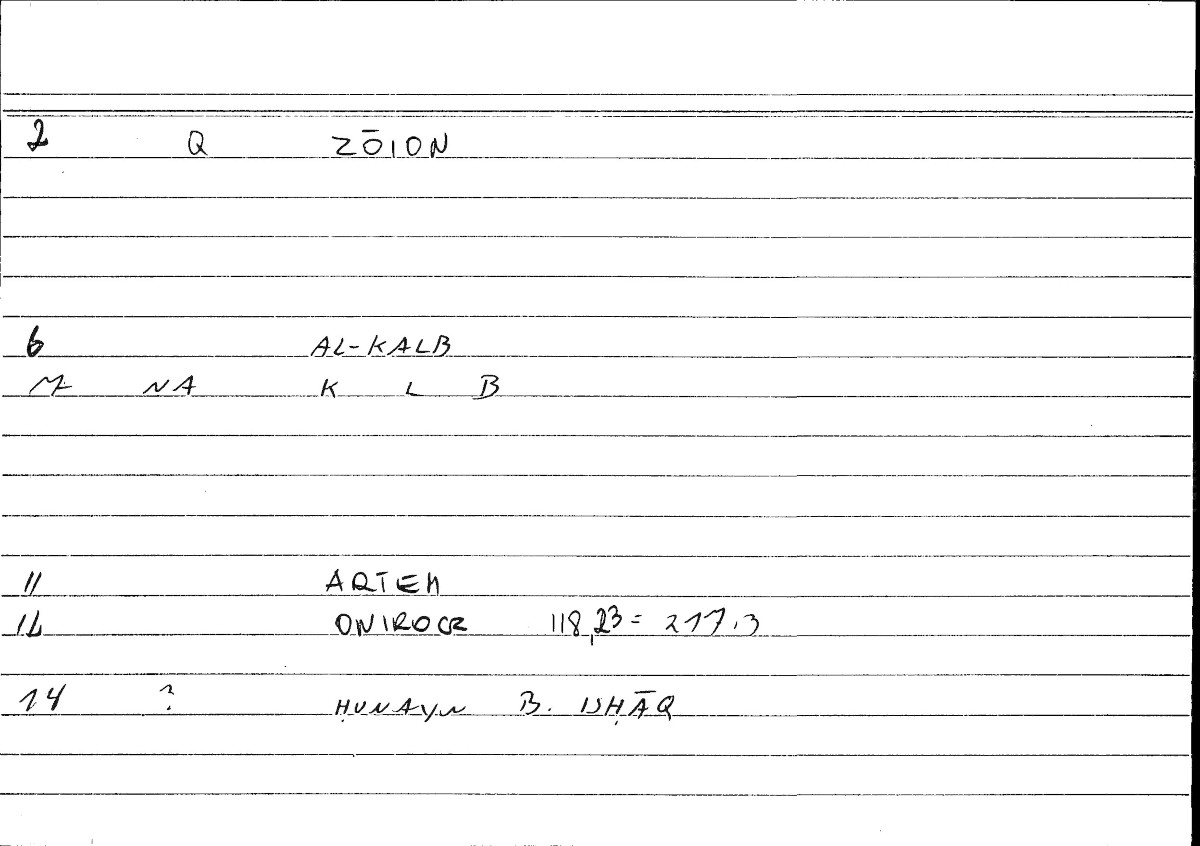 2 Q ZŌION
6 AL-KALB
NA K L B
11 ARTEM
12 ONIROCR 118,23 = 217.3
14 ? ḤUNAYN B. ISḤĀQ